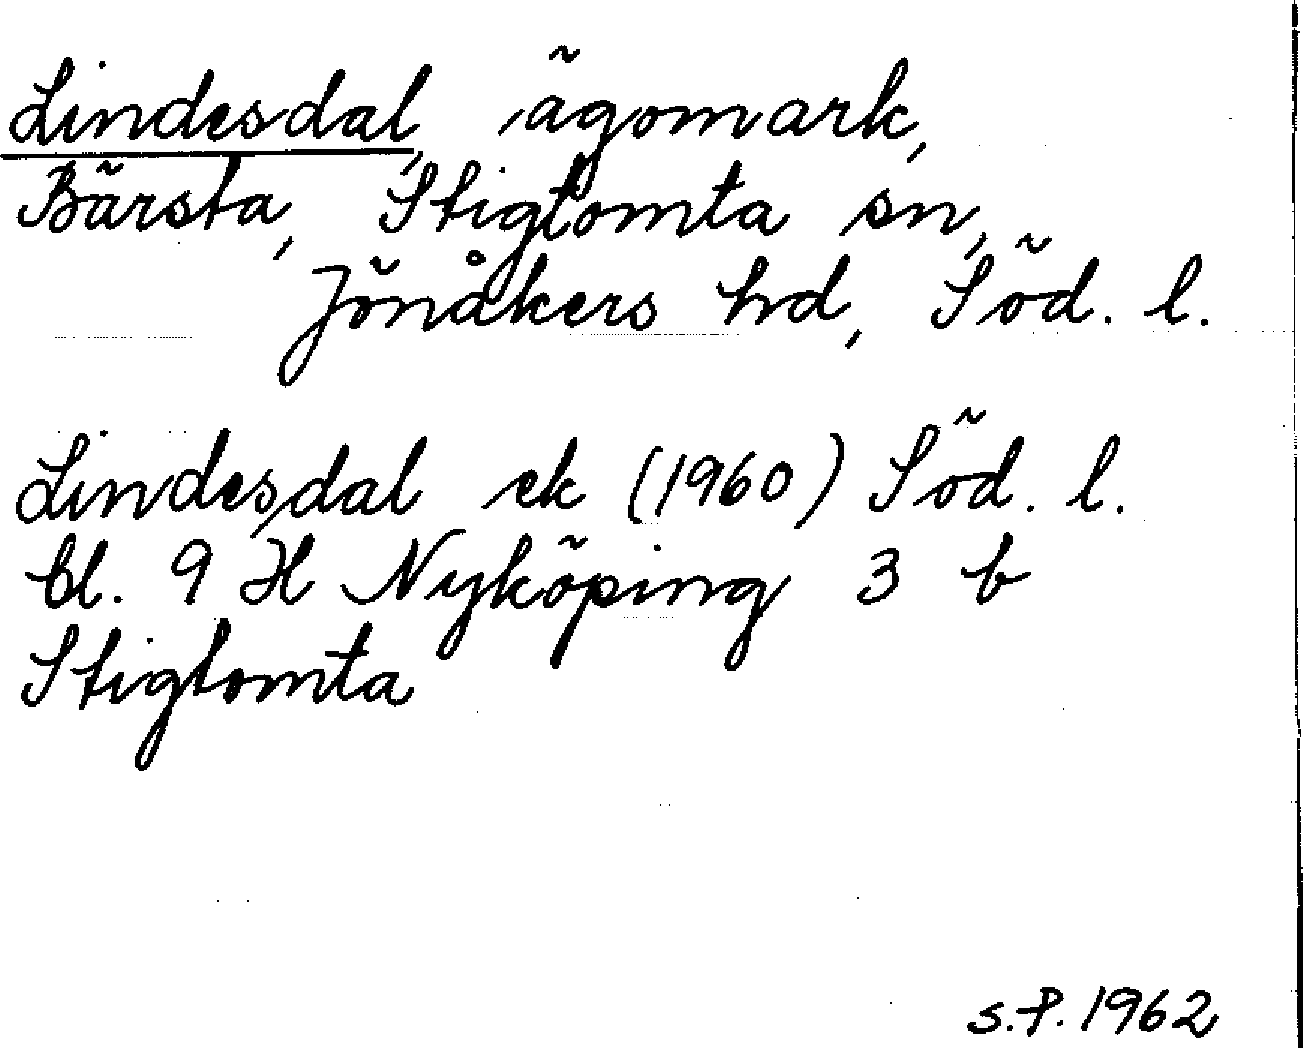 Lindesdal, ägomark,
Bärsta, Stigtomta sn,
Jönåkers hd, Söd. l.
Lindesdal ek (1960) Söd. l.
bl. 9 H Nyköping 3 b
Stigtomta
S.P. 1962